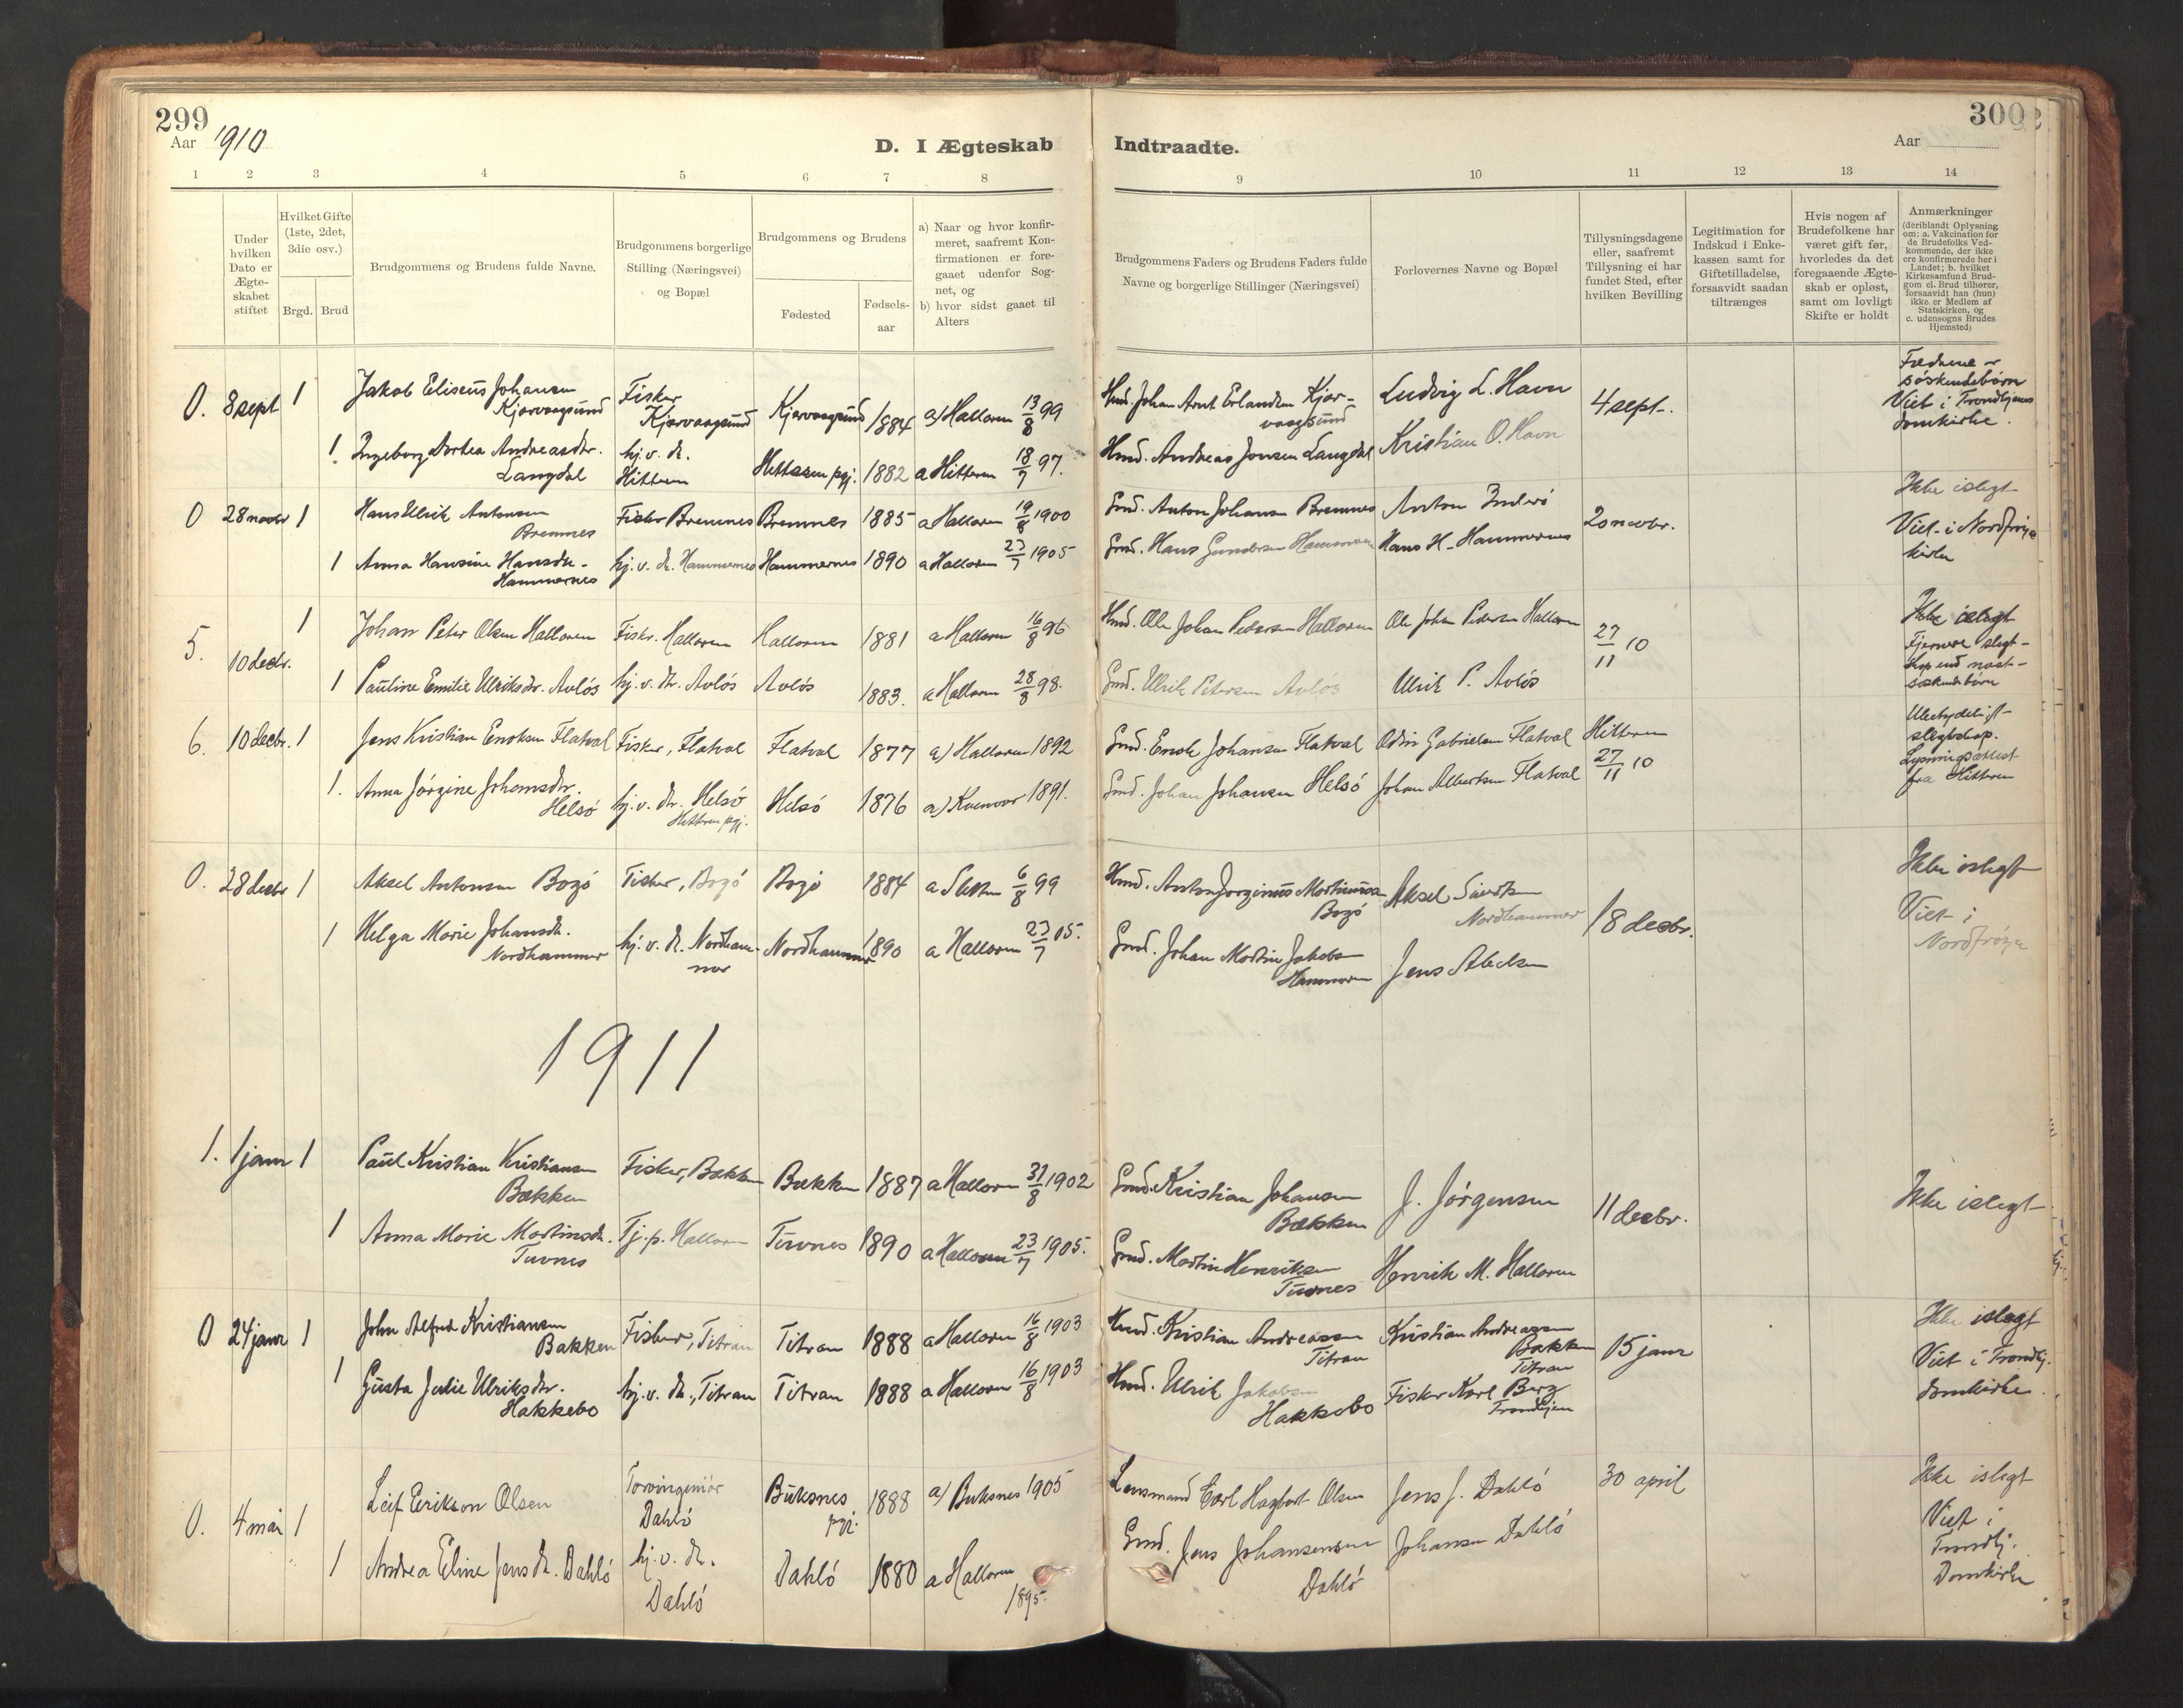 299
Aar 1910
D. I Ægteskab
Indtraadte.
300
Aar
1 2 3 4 5 6 7 8
9 10 11 12 13 14
Under hvilken Dato er Ægte-skabet stiftet
Hvilket Gifte (1ste, 2det, 3die osv.)
Brgd. Brud
Brudgommens og Brudens fulde Navne.
Brudgommens borgerlige Stilling (Næringsvei) og Bopæl
Brudgommens og Brudens
Fødested
Fødsels-aar
a) Naar og hvor konfir-meret, saafremt Kon-firmationen er fore-gaaet udenfor Sog-net, og
b) hvor sidst gaaet til Alters
Brudgommens Faders og Brudens Faders fulde Navne og borgerlige Stillinger (Næringsvei)
Forlovernes Navne og Bopæl
Tillysningsdagene eller, saafremt Tillysning ei har fundet Sted, efter hvilken Bevilling
Legitimation for Indskud i Enke-kassen samt for Giftetilladelse, forsaavidt saadan tiltrænges
Hvis nogen af Brudefolkene har været gift før, hvorledes da det foregaaende Ægte-skab er opløst, samt om lovligt Skifte er holdt
Anmærkninger (deriblandt Oplysning om: a. Vakcination for de Brudefolks Ved-kommende, der ikke ere konfirmerede her i Landet; b. hvilket Kirkesamfund Brud-gom el. Brud tilhører, forsaavidt han (hun) ikke er Medlem af Statskirken, og c. udensogns Brudes Hjemsted)
0. 8 sept 1 Jakob Eliseus Johansen Kjørvaagsund Fisker Kjørvaagsund Kjervaagsund 1884 a) Halloren 13/8 99 Hmd. Johan Arnt Erlandsen Kjør-vaagsund Ludvig L. Havn 4 sept. Fædrene søskendebørn Viet i Trondhjems domkirke.
1. Ingeborg Dortea Andreasdtr. Langdal hj.v.d. Hitteren Hitteren pgj. 1882 a Hitteren 18/7 97. Hmd. Andreas Jonsen Langdal Kristian O. Havn
0 28 novbr 1 Hans Ulrik Antonsen Bremnes Fisker Bremnes Bremnes 1885 a Halloren 19/8 1900 Gmd. Anton Johansen Bremnes Anton Inderö 20 novbr. Ikke islegt Viet i Nordfröya kirke
1 Anna Hansine Hansdtr. Hammernes hj.v.d. Hammernes Hammernes 1890 a Halloren 23/7 1905 Gmd. Hans Gundersen Hammernes Hans H. Hammernes
5. 10 decbr. 1 Johan Peter Olsen Halloren Fisker. Halloren Halloren 1881 a Halloren 16/8 96 Hmd. Ole Johan Pedersen Halloren Ole Johan Pedersen Halloren 27/11 10 Ikke islegt Fjernere slegt-
1 Pauline Emilie Ulriksdtr. Avlös hj.v.dtr. Avlös Avlös 1883. a Halloren 28/8 98. Gmd. Ulrik Petersen Avlös Ulrik P. Avlös
6. 10 decbr. 1 Jens Kristian Enoksen Flatval Fisker, Flatval Flatval 1877 a) Halloren 1892 Gmd. Enok Johansen Flatval Odin Gabrielsen Flatval Hitteren 27/11 10 Ubetydeligt slegtskap. Lysningsattest fra Hitteren
1. Anna Jörgine Johansdtr. Helsö hj.v.dtr. Helsö Hitteren pgj. Helsö 1876 a) Kvenvær 1891. Gmd. Johan Johansen Helsö Johan Albertsen Flatval
0. 28 decbr 1 Aksel Antonsen Bogö Fisker, Bogö Bogö 1884 a Sletten 6/8 99 Hmd. Anton Jörginus Martinussen Bogö Aksel Sivertsen Nordhammer 18 decbr. Ikke islegt Viet i Nordfröya
1 Helga Marie Johansdtr. Nordhammer hj.v.d. Nordham-mer Nordhammer 1890 a Halloren 23/7 05. Gmd. Johan Martin Jakobsen Hammeren Jens Abelsen
1911
1. 1 janr 1 Paul Kristian Kristiansen Bækken Fisker, Bækken Bækken 1887 a Halloren 31/8 1902 Gmd. Kristian Johansen Bækken J. Jörgensen 11 decbr. Ikke islegt
1 Anna Marie Martinsdtr. Tuvnes Tj.p. Halloren Tuvnes 1890 a Halloren 23/7 1905. Gmd. Martin Henriksen Tuvnes Henrik M. Halloren
0 24 janr 1 John Alfred Kristiansen Bakken Fisker, Titran Titran 1888 a Halloren 16/8 1903 Hmd. Kristian Andreassen Titran Kristian Andreassen Bakken Titran 15 janr Ikke islegt Viet i Trondhj. domkirke.
1 Gusta Julie Ulriksdtr. Hakkebo hj.v.d., Titran Titran 1888 a Halloren 16/8 1903 Hmd. Ulrik Jakobsen Hakkebo Fisker Karl Berg Trondhjem
0. 4 mai 1 Leif Erikson Olsen Torvingeniör Dahlö Buksnes pgj. 1888 a) Buksnes 1905 Lensmand Carl Hagbart Olsen Jens J. Dahlö 30 april Ikke islegt Viet i Trondhj. Domkirke
1 Andrea Eline Jensdtr. Dahlö hj.v.d. Dahlö Dahlö 1880 a Halloren 1895. Gmd. Jens Johansensen Dahlö Johansen Dahlö